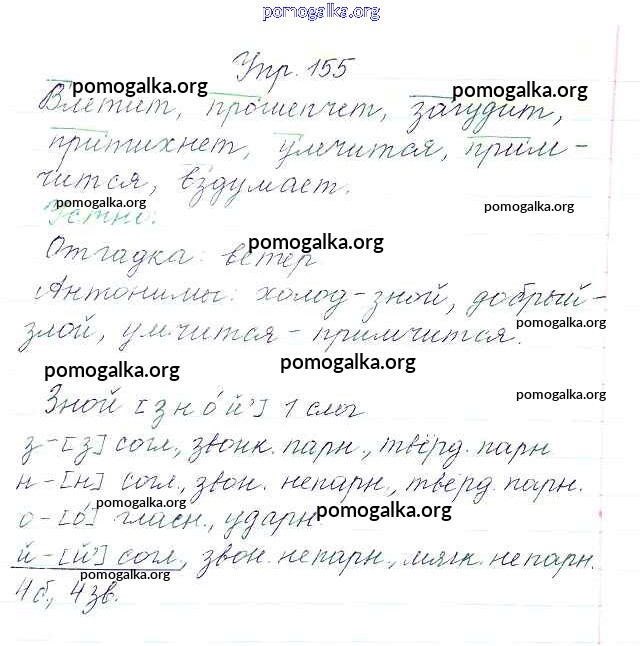 pomogalka.org
Упр. 155
pomogalka.org pomogalka.org
Влетит, прошепчет, загудит,
притихнет, улечится, прим-
чится, вздумает.
pomogalka.org pomogalka.org
Устно:
pomogalka.org
Отгадка: ветер
Антонимы: холод-зной, добрый-
pomogalka.org
злой, умчится-примчится.
pomogalka.org pomogalka.org
pomogalka.org
Зной [зно́й'] 1 слог
з-[з] согл., звонк. парн., твёрд. парн
н-[н] согл., звон. непарн., твёрд. парн.
pomogalka.org
о-[о́] гласн., ударн.
pomogalka.org
й-[й'] согл., звон. непарн., мягк. непарн.
pomogalka.org
4 б., 4 зв.